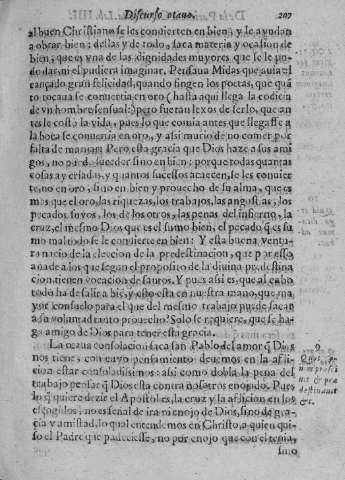 Discurso otauo. 207
al buen Christiano se les conuierten en bien; y le ayudan
a obrar bien: dellas y de todo, saca materia y ocasion de
bien; que es vna de las dignidades mayores que se le pu-
de dar, ni el pudiera imaginar. Pensaua Midas que auia al-
cançado gran felicidad, quando fingen los poetas, que quã
to tocaua se conuertia en oro (hasta aqui llega la codicia
de vn hombre sensual:) pero fue tan lexos de serlo, que an
tes le costò la vida, pues lo que comia antes que llegasse a
la boca se conuertia en oro, y assi murio de no comer por
falta de manjar. Pero esta gracia que Dios haze a sus ami
gos, no puede suceder sino en bien: porque todas quantas
cosas ay criadas, y quantos sucessos acaecen, se les conuier
te, no en oro, sino en bien y prouecho de su alma, que es
mas que el oro, las riquezas, los trabajos, las angustias, los
pecados suyos, los de los otros, las penas del infierno, la
cruz, el mesmo Dios que es el sumo bien, el pecado q̃ es su
mo mal todo se le conuierte en bien: Y esta buena ventu-
ra nacio de la eleccion de la predestinacion, que por esso
añade a los que segun el proposito de la diuina predestina
cion, tienen vocacion de santos. Y pues assi es, que al cabo
todo ha de salir a biẽ, y esto esta en nuestra mano, que ma
yor consuelo para el que del mesmo trabajo puede sacar
a su voluntad tanto prouecho? Solo se requiere, que se ha-
ga amigo de Dios para tener esta gracia.
La otaua consolacion saca san Pablo del amor q̃ Dios
nos tiene, con cuyo pensamiento deuemos en la afli-
cion estar consoladissimos: assi como dobla la pena del
trabajo pensar q̃ Dios esta contra nosotros enojado. Pues
lo q̃ quiere dezir el Apostol es, la cruz y la aflicion en los
escogidos, no es señal de ira ni enojo de Dios, sino de gra-
cia y amistad, lo qual entendemos en Christo, a quien qui-
so el Padre que padeciesse, no por enojo que con el tenia,
sino
9.
&c.